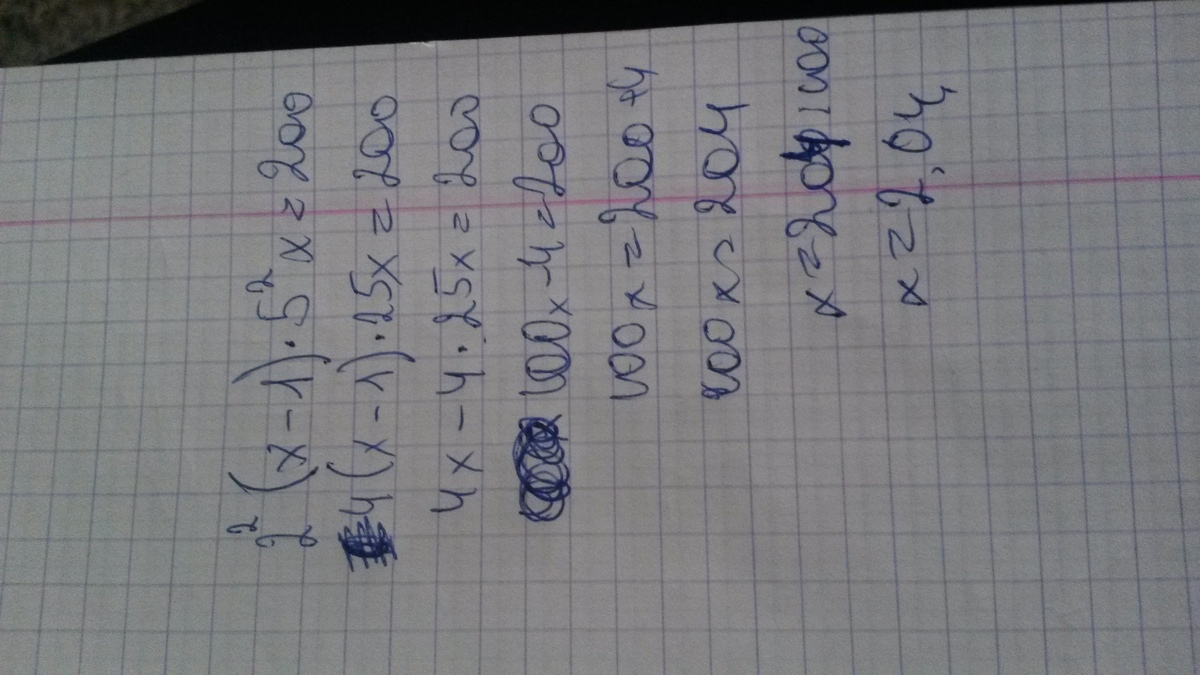 2² (x - 1) · 5² x = 200
4 (x - 1) · 25x = 200
4x - 4 · 25x = 200
100x - 4 = 200
100x = 200 + 4
100x = 204
x = 204 : 100
x = 2,04